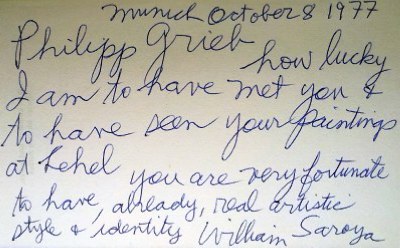 Munich October 8 1977
Philipp Grieb
how lucky
I am to have met you &
to have seen your paintings
at Lehel you are very fortunate
to have, already, real artistic
style & identity William Saroya